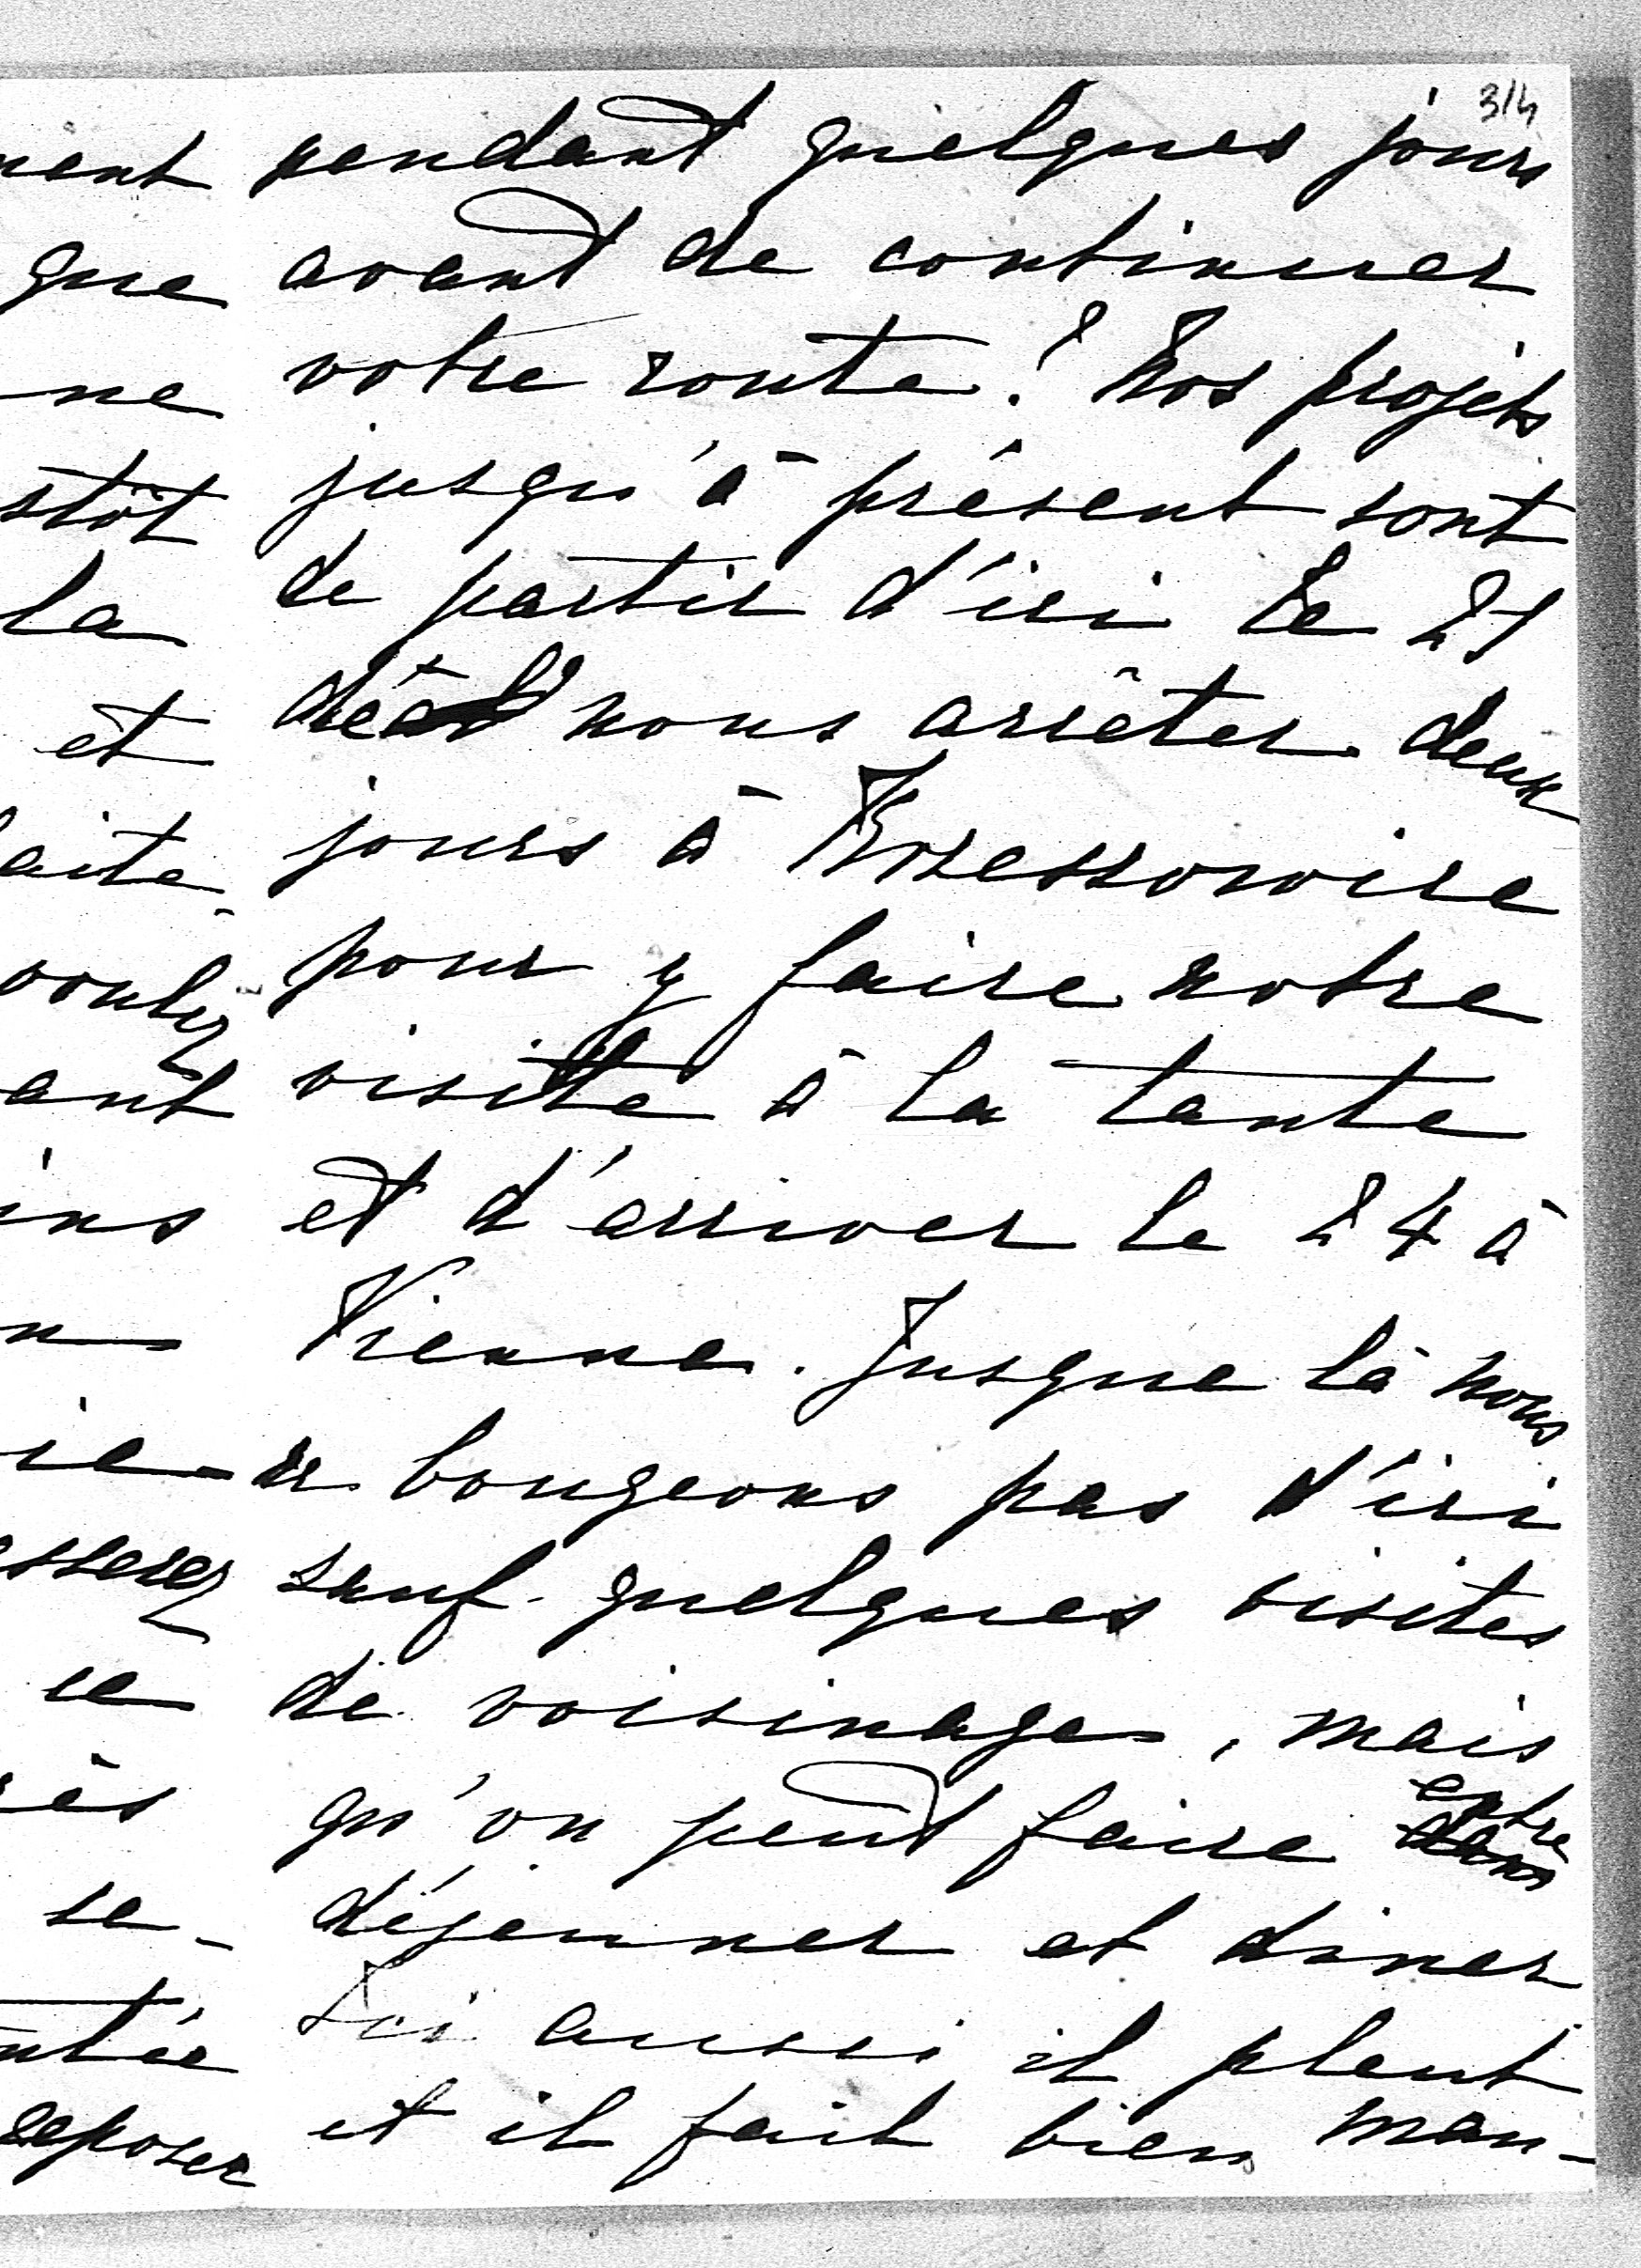 314
pendant quelques jours
avant de continuer
votre route? Nos projets
jusqu'à présent sont
de partir d'ici le 21
nous arrêter deux
jours à
pour y faire notre
visite à la tante
et d'arriver le 24 à
Vienne. Jusque là nous
ne bougeons pas d'ici
sauf quelques visites
de voisinage, mais
qu'on peut faire entre
déjeuner et diner
Ici aussi il pleut
et il fait bien mau-
nent
que
ne
stôt
la
et
aite
voulez
ant
ins
n
ie-
sserez
ce
rès
se-
ntée
reposer